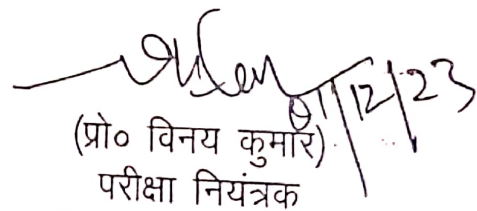 01/12/23
(प्रो० विनय कुमार)
परीक्षा नियंत्रक